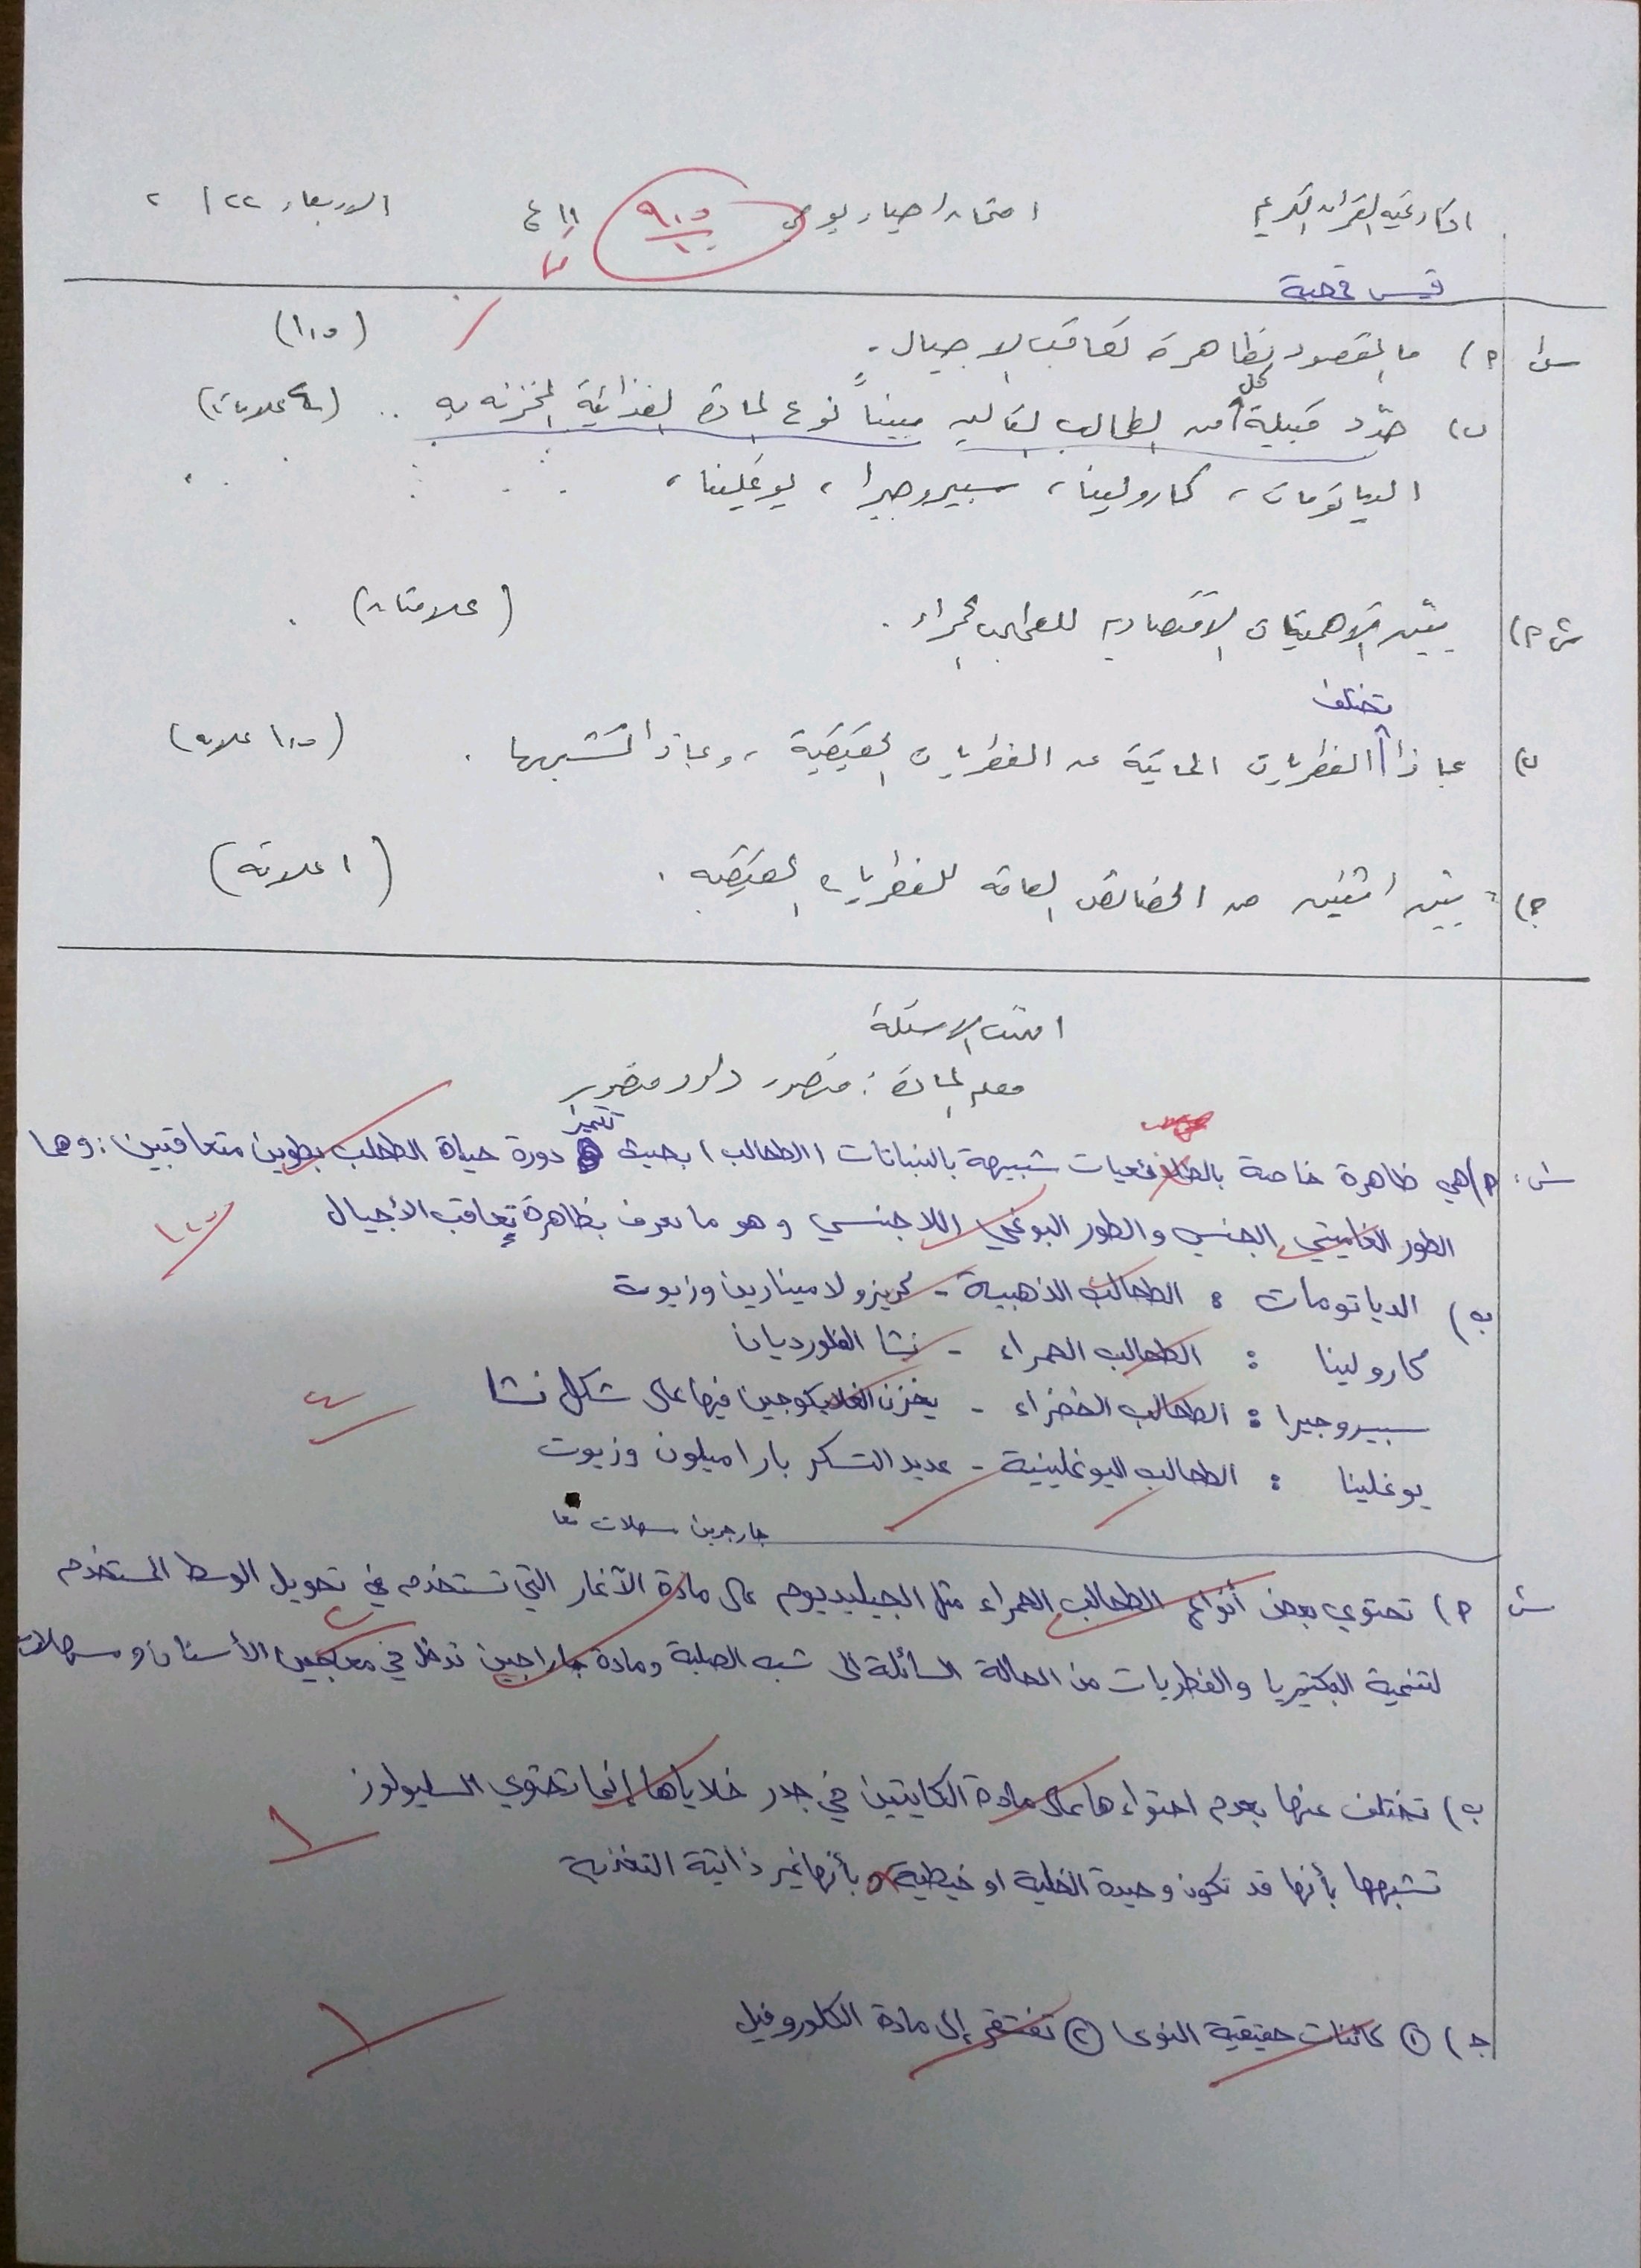 اكاديمية القران الكريم امتحان احياء يومي ٩,٥/١٠ ١١ع الاربعاء ٢٢/٢
قيس
س١ أ) ما المقصود بظاهرة تعاقب الاجيال. (١,٥)
ب) حدّد قبيلة كل من الطحالب التالية مبيناً نوع المادة الغذائية المخزنة به .. (٤ علامات)
الدياتومات، كارولينا، سبيروجيرا، يوغلينا،
س٢ أ) بيّن الاهميات الاقتصادية للطحالب الحمراء. (علامتان)
ب) بماذا تختلف الفطريات المائية عن الفطريات الحقيقية، وبماذا تشبهها. (١,٥ علامة)
ج) بيّن اثنتين من الخصائص العامة للفطريات الحقيقية. (١ علامة)
انتهت الاسئلة
معلم المادة: منصور داود منصور
س١: أ) هي ظاهرة خاصة شبيهة بالنباتات (الطحالب) بحيث تتميز دورة حياة الطحلب بطورين متعاقبين: وهما
الطور الغاميتي الجنسي والطور البوغي اللاجنسي وهو ما يعرف بظاهرة تعاقب الأجيال ١,٥
ب) الدياتومات : الطحالب الذهبية - كريزولامينارين وزيوت
كارولينا : الطحالب الحمراء - نشا الفلورديان
سبيروجيرا : الطحالب الخضراء - يخزن الغلايكوجين فيها على شكل نشا ٤
يوغلينا : الطحالب اليوغلينية - عديد التسكر باراميلون وزيوت
س٢ أ) تحتوي بعض أنواع الطحالب الحمراء مثل الجيليديوم على مادة الآغار التي تستخدم في تحويل الوسط المستخدم
لتنمية البكتيريا والفطريات من الحالة السائلة الى شبه الصلبة ومادة جاراجين تدخل في معاجين الأسنان ومسهلات ٢
ب) تختلف عنها بعدم احتواءها على مادة الكايتين في جدر خلاياها إنما تحتوي السليولوز
تشبهها بأنها قد تكون وحيدة الخلية او خيطية وبأنها غير ذاتية التغذية ١
ج) ① كائنات حقيقية النوى ② تفتقر إلى مادة الكلوروفيل ١